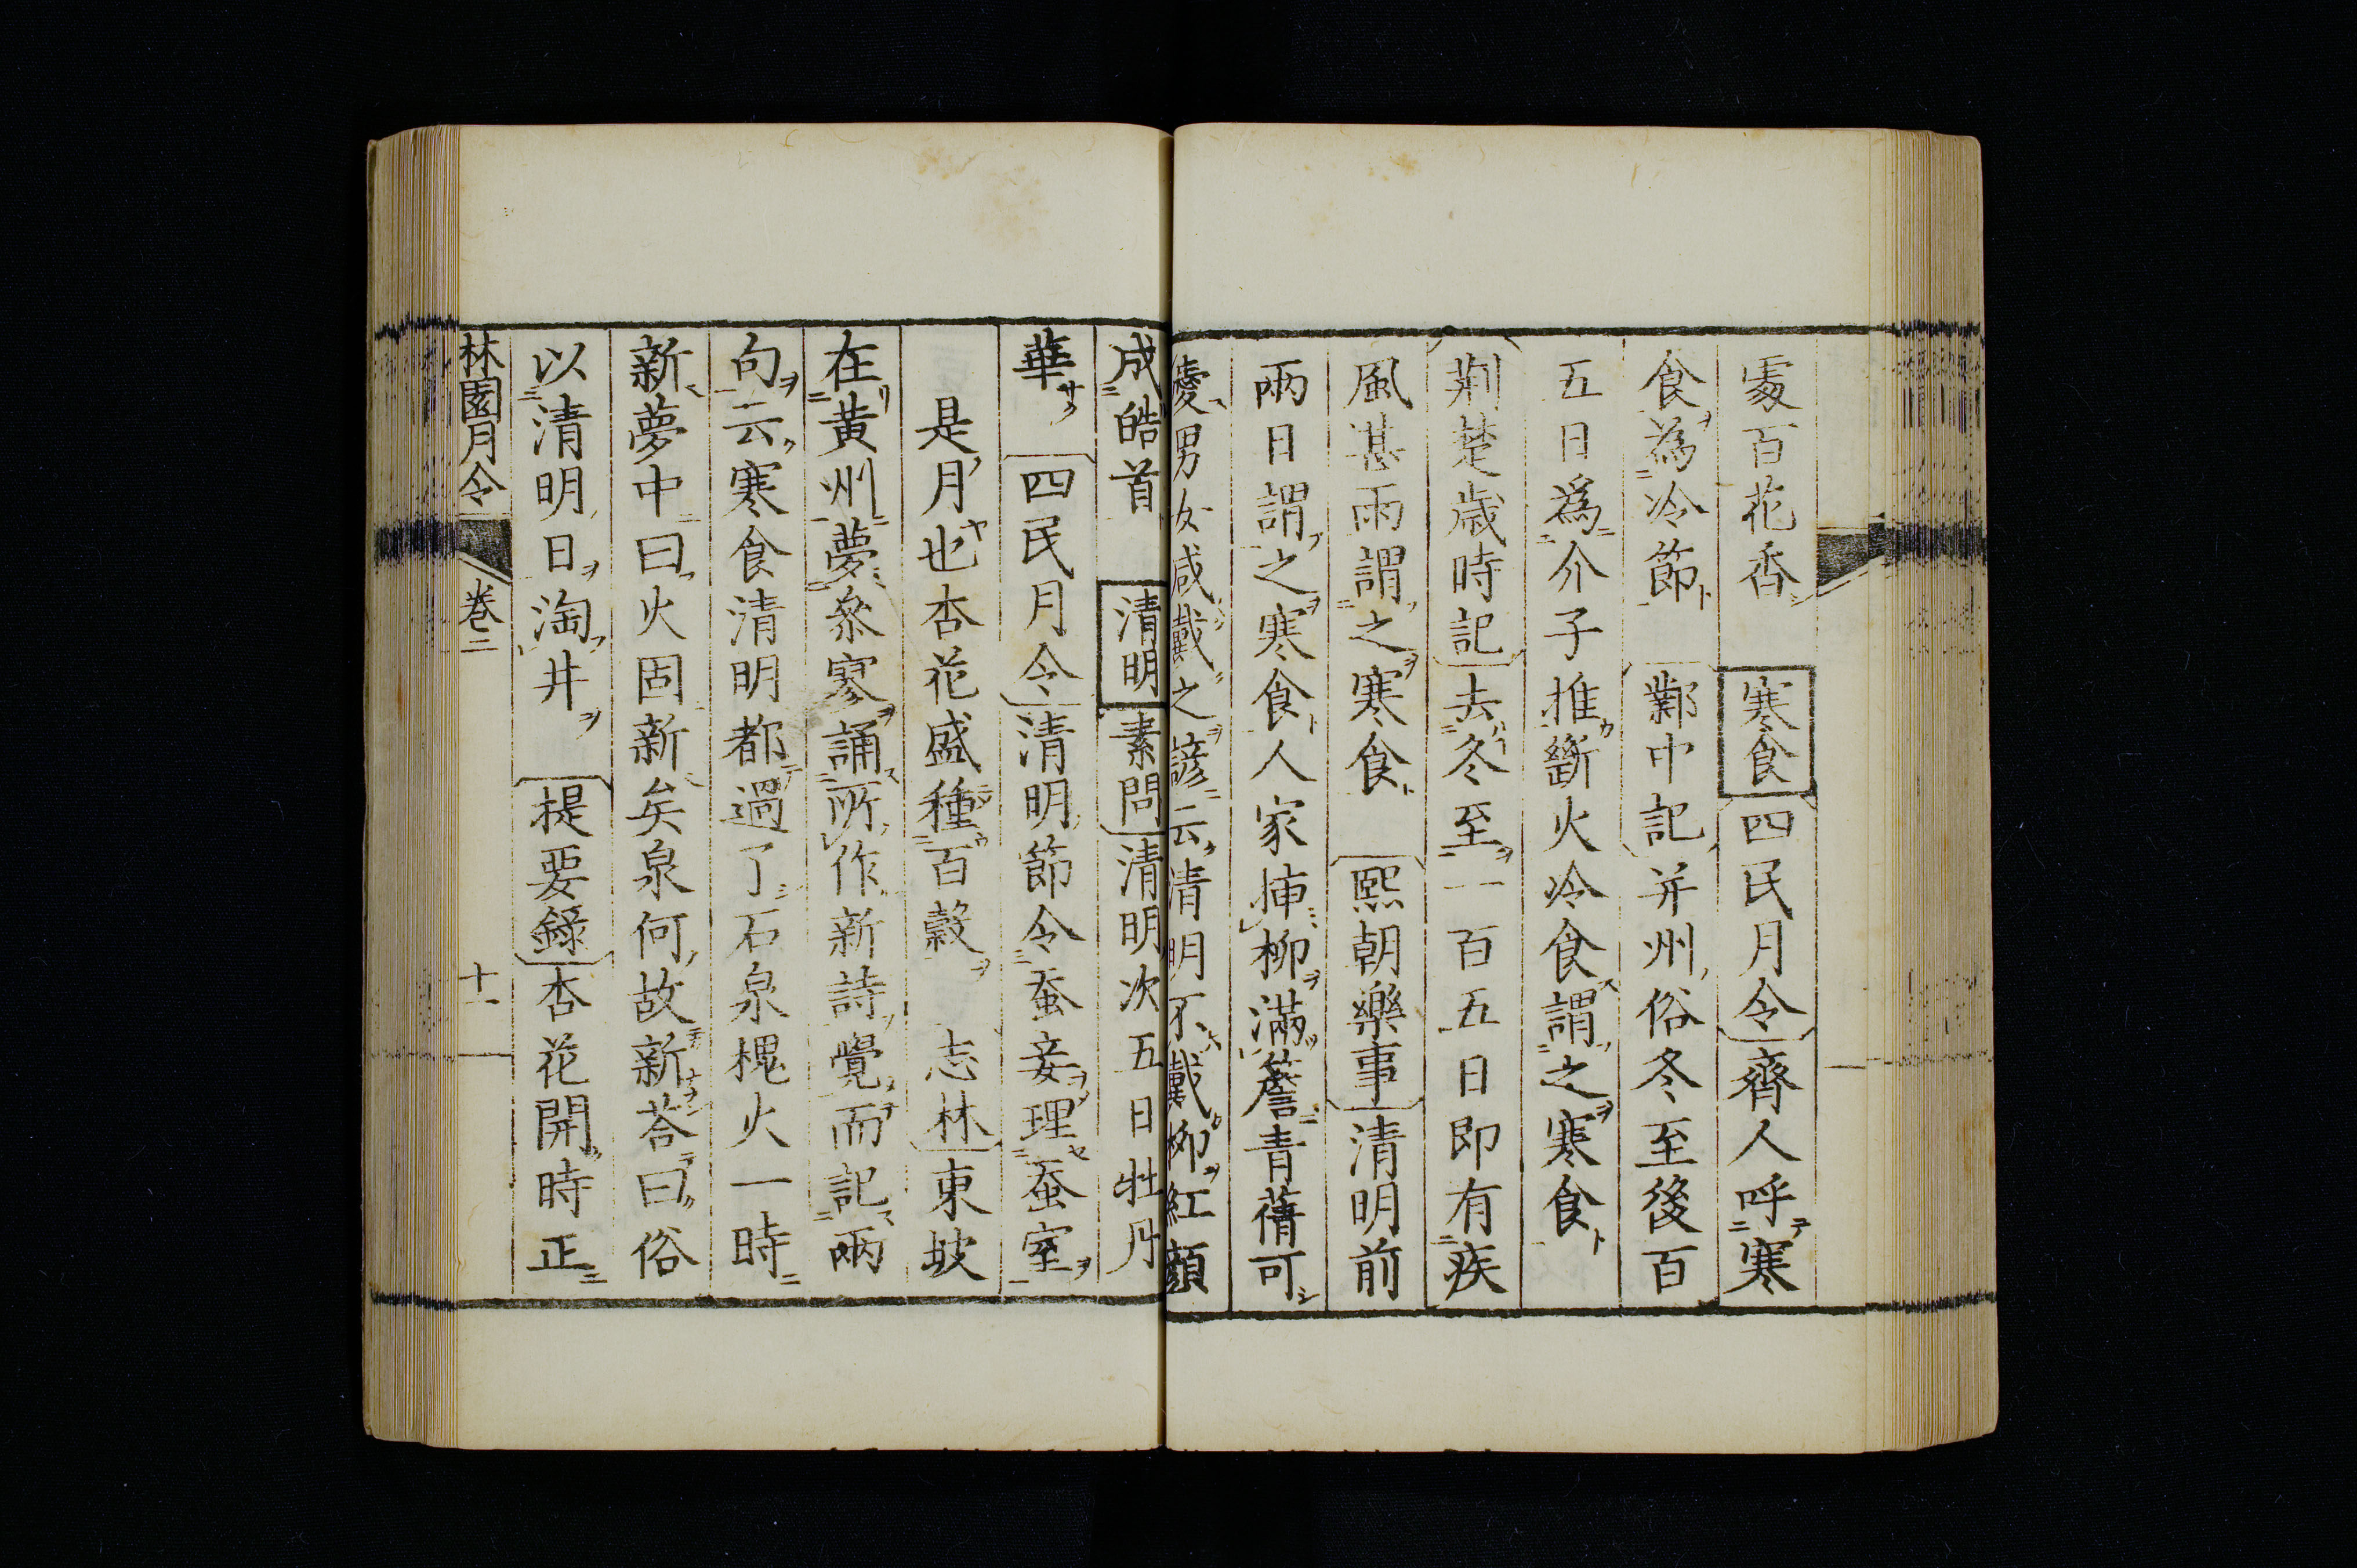 䖏百花香　寒食　四民月令　齊人呼寒
食為冷節　鄴中記　并州俗冬至後百
五日爲介子推斷火冷食謂之寒食
荆楚歳時記　去冬至一百五日即有疾
風甚雨謂之寒食　熙朝樂事　清明前
兩日謂之寒食人家揷柳滿簷青蒨可
愛男女咸戴之諺云清明不戴柳紅顔
成皓首　清明　素問　清明次五日牡丹
華　四民月令　清明節令蚕妾理蚕室
是月也杏花盛種百穀　志林　東坡
在黄州夢叅寥誦所作新詩覺而記兩
句云寒食清明都過了石泉槐火一時
新夢中曰火固新矣泉何故新荅曰俗
以清明日淘井　提要錄　杏花開時正
林園月令　卷二　十一